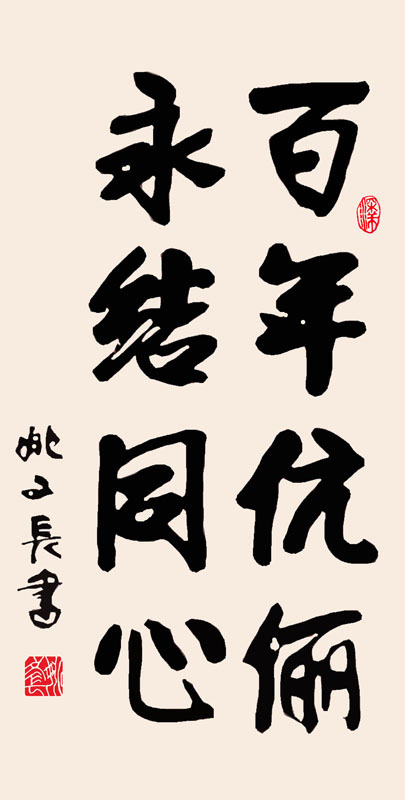 百年伉俪
永结同心
姚又長書